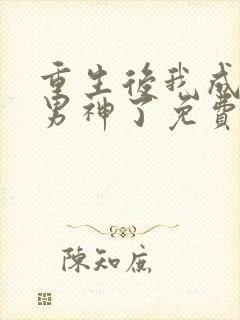 重生後我成
男神了免費
陳知底